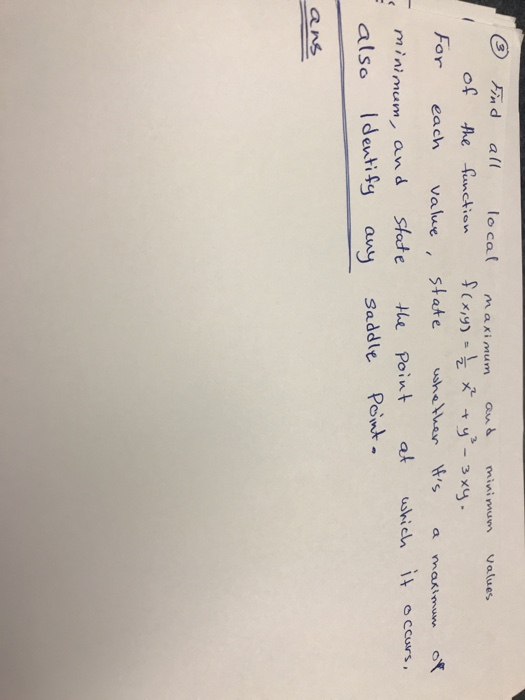 ③ Find all local maximum and minimum values
of the function f(x,y) = 1/2 x² + y³ - 3xy.
For each value, state whether it's a maximum or
minimum, and state the point at which it occurs,
also Identify any saddle point.
ans